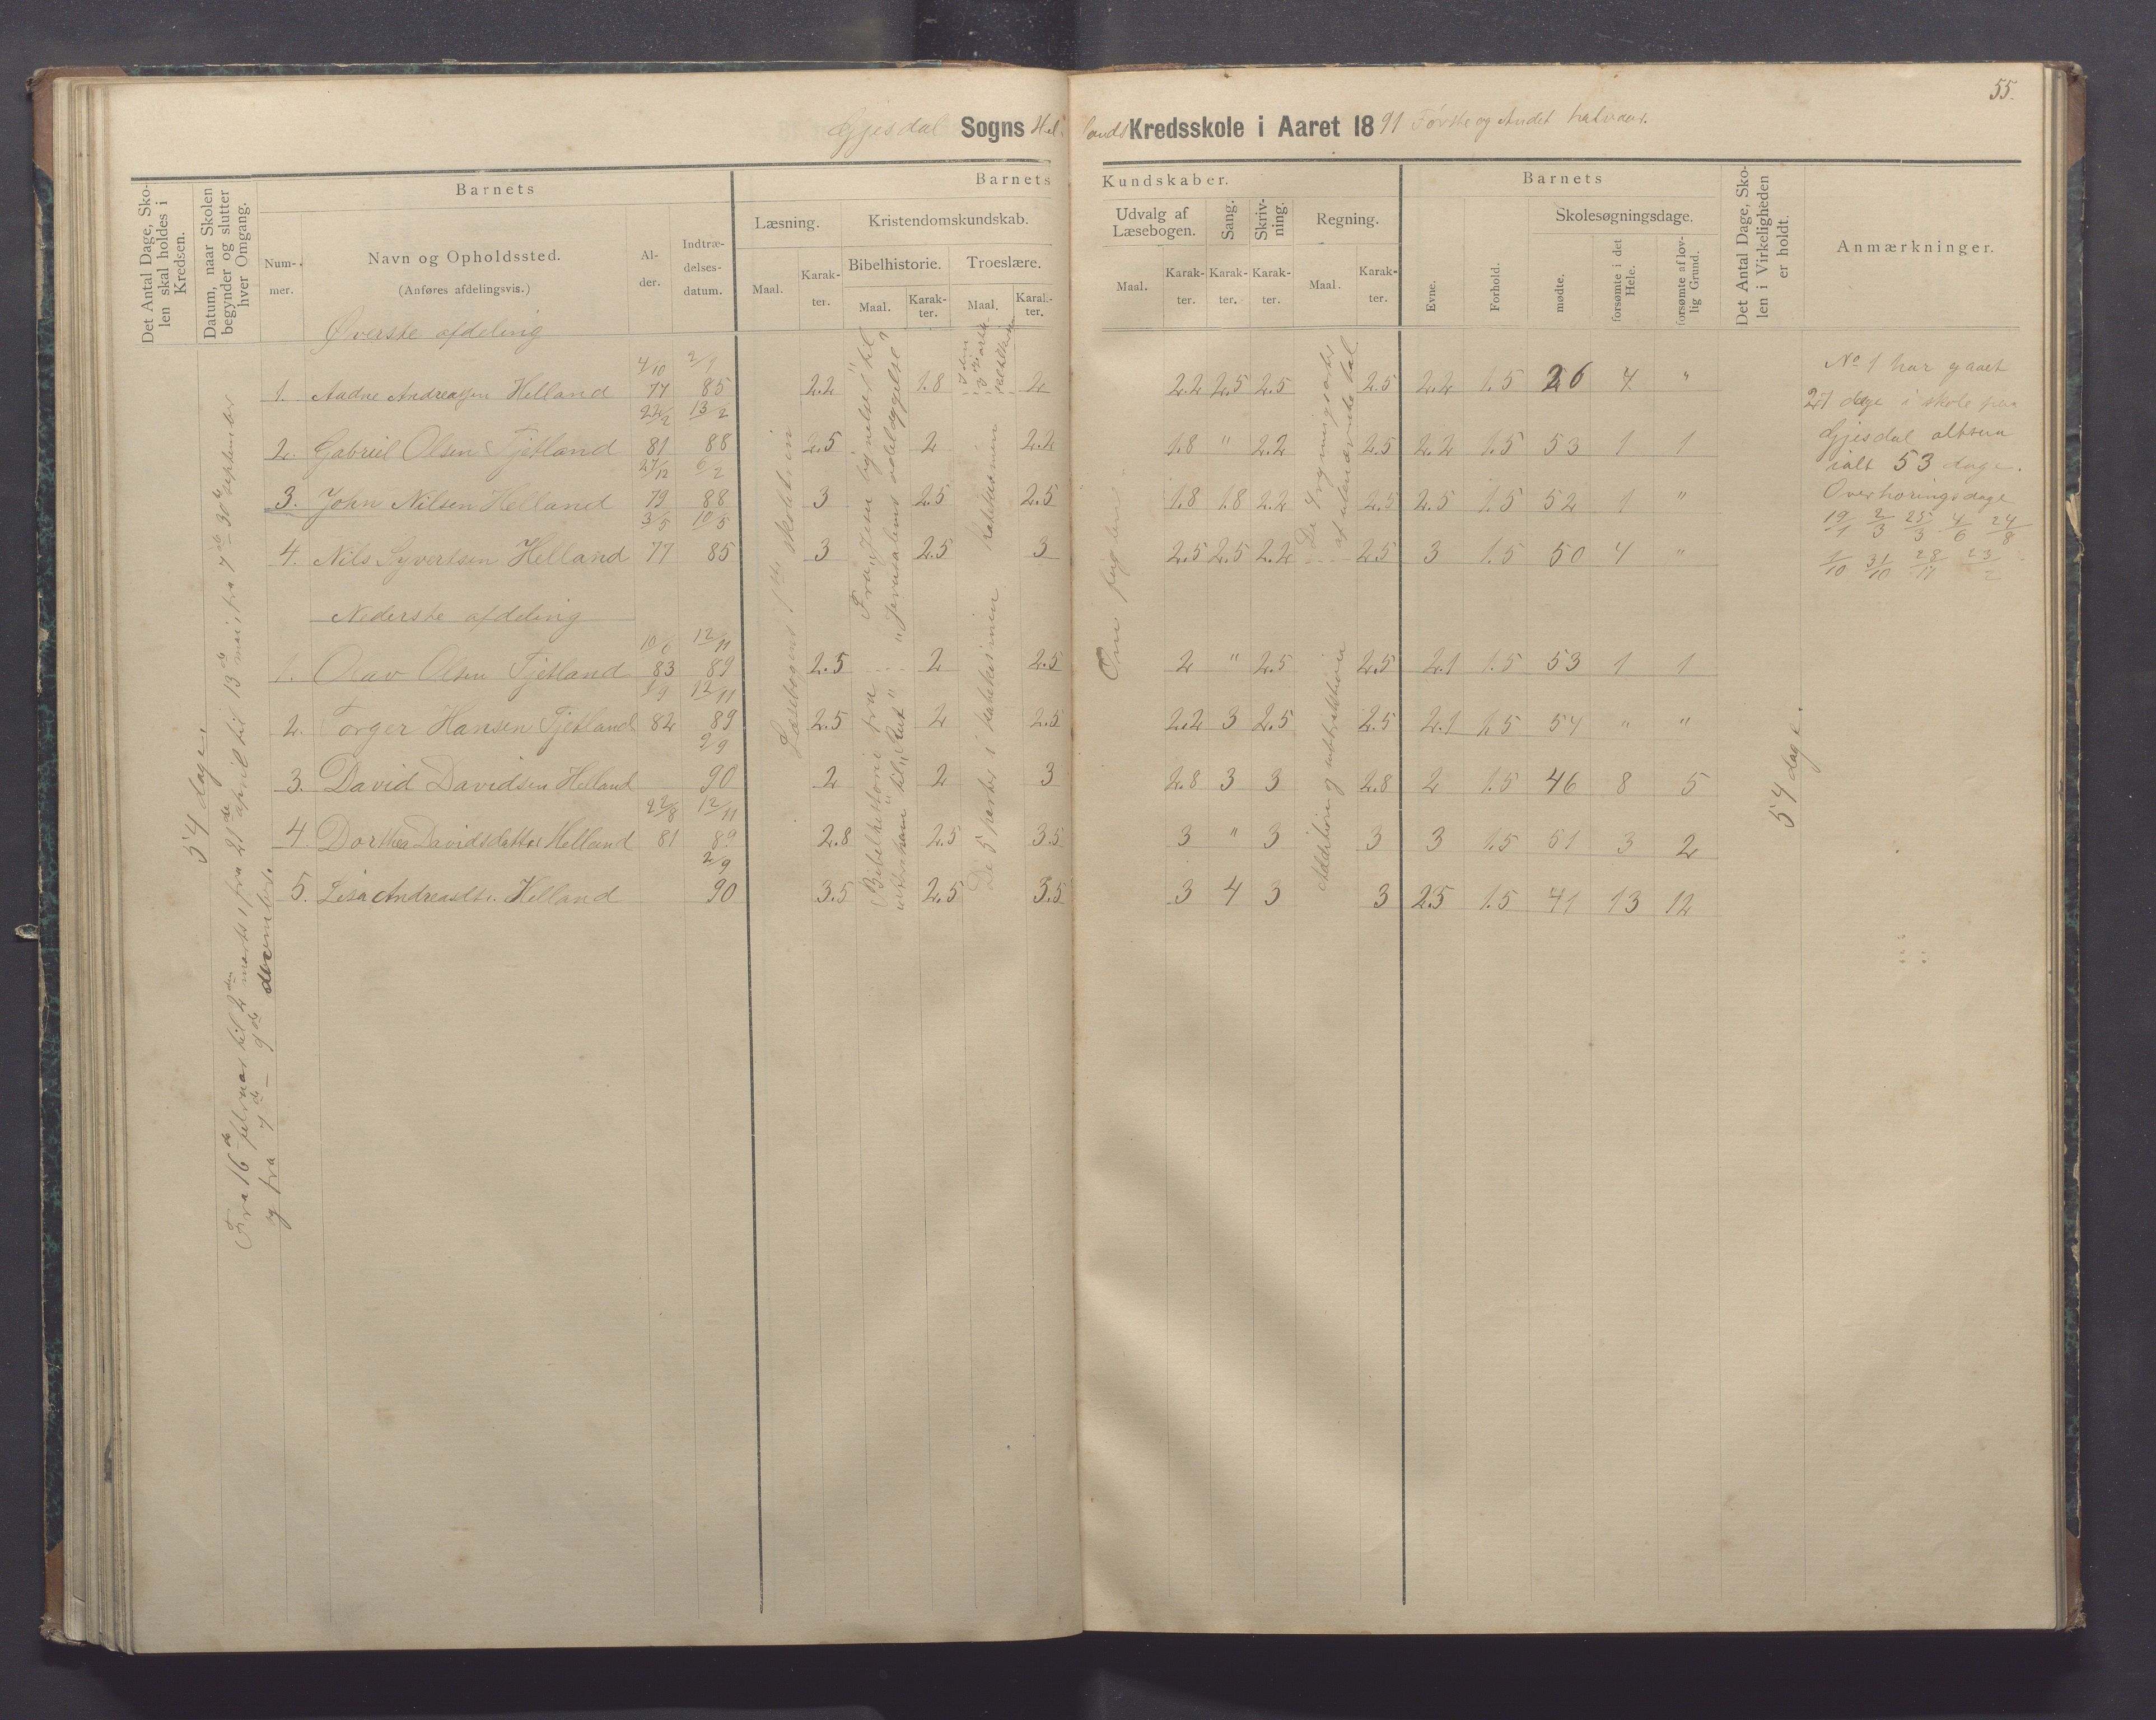 55.
Gjesdal Sogns Hellands Kredsskole i Aaret 1891 Første og Andet halvaar.
Det Antal Dage, Skolen skal holdes i Kredsen.
Datum, naar Skolen begynder og slutter hver Omgang.
Barnets
Nummer.
Navn og Opholdssted.
(Anføres afdelingsvis.)
Alder.
Indtrædelsesdatum.
Barnets Kundskaber.
Læsning.
Maal.
Karakter.
Kristendomskundskab.
Bibelhistorie.
Maal.
Karakter.
Troeslære.
Maal.
Karakter.
Udvalg af Læsebogen.
Maal.
Karakter.
Sang.
Karakter.
Skrivning.
Karakter.
Regning.
Maal.
Karakter.
Barnets
Evne.
Forhold.
Skolesøgningsdage.
mødte.
forsømte i det Hele.
forsømte af lovlig Grund.
Det Antal Dage, Skolen i Virkeligheden er holdt.
Anmærkninger.
54 dage.
Fra 16de februar til 2den marts, fra 21de april til 13de mai, fra 7de – 30te september
og fra 7de – 9de december.
Øverste afdeling
1. Aadne Andreassen Helland 4/10 77 2/9 85 2.2 1.8 2 2.2 2.5 2.5 2.5 2.2 1.5 26 4 "
2. Gabriel Olsen Fjetland 22/2 81 13/2 88 2.5 2 2.2 1.8 " 2.2 2.5 2.2 1.5 53 1 1
3. John Nilsen Helland 27/12 79 6/2 88 3 2.5 2.5 1.8 1.8 2.2 2.5 2.5 1.5 52 1 "
4. Nils Syvertsen Helland 3/5 77 10/5 85 3 2.5 3 2.5 2.5 2.2 2.5 3 1.5 50 4 "
Nederste afdeling
1. Olav Olsen Fjetland 10/6 83 12/11 89 2.5 2 2.5 2 " 2.5 2.5 2.1 1.5 53 1 1
2. Torger Hansen Fjetland 82 12/11 89 2.5 2 2.5 2.2 3 2.5 2.5 2.1 1.5 54 " "
3. David Davidsen Helland 2/9 90 2 2 3 2.8 3 3 2.8 2 1.5 46 8 5
4. Dorthea Davidsdatter Helland 22/8 81 12/11 89 2.8 2.5 3.5 3 " 3 3 3 1.5 51 3 2
5. Lisa Andreasdtr. Helland 2/9 90 3.5 2.5 3.5 3 4 3 3 2.5 1.5 41 13 12
Læsebogens 1ste skoletrin
Fra "Jesu lignelser" til
"Jerusalems ødelæggelse"
Bibelhistorie fra
til "Rut"
katekismien
De 5 parter i katekismien
Om fuglene
De 4 regningsarter
af ubenævnte tal
Addition og subtraktion
54 dage.
No 1 har gaaet
27 dage i skole paa
Gjesdal altsaa
ialt 53 dage.
Overhøringsdage
19/1 2/3 25/3 4/6 24/8
1/10 31/10 28/11 23/2